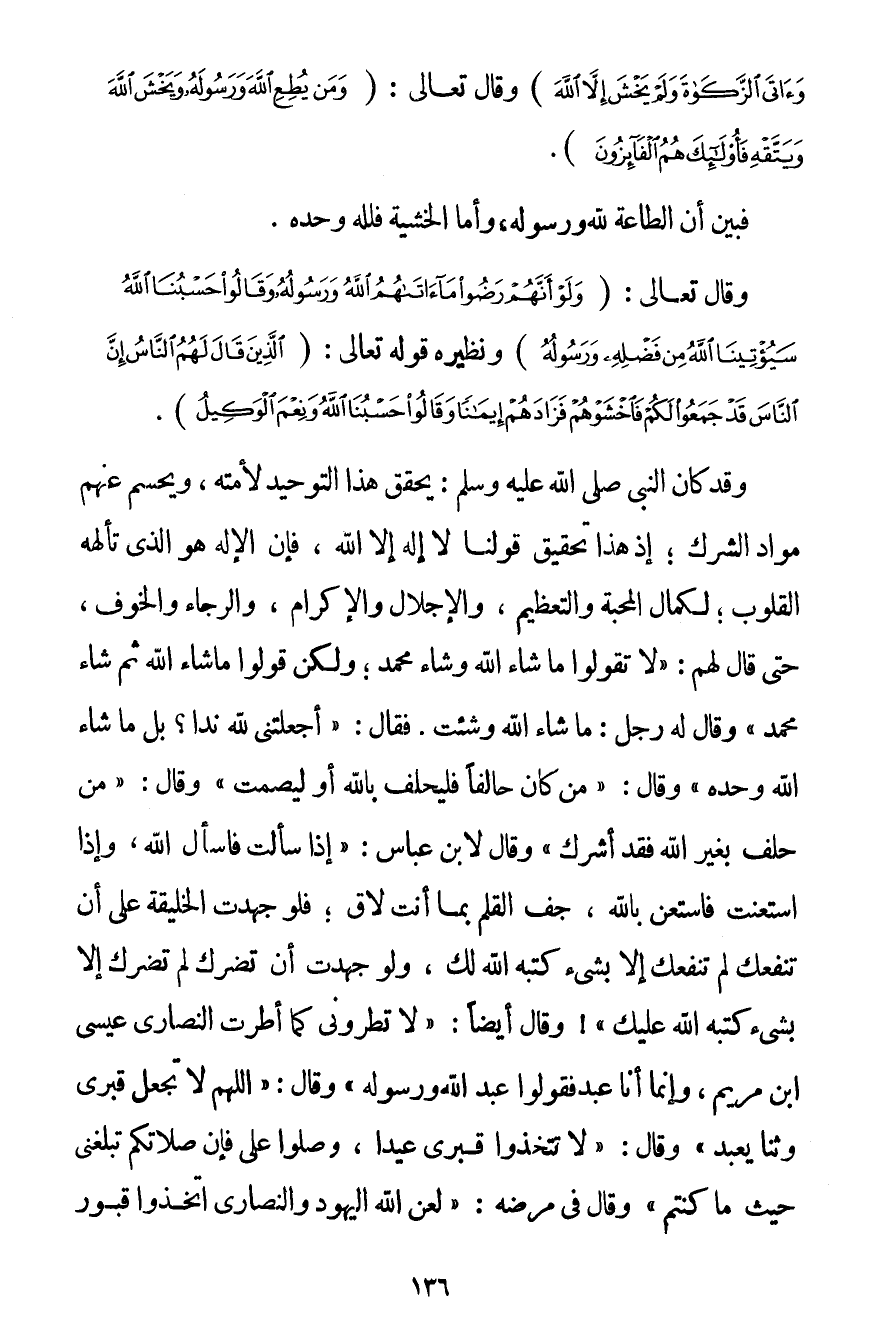 وَءَاتَى ٱلزَّكَوٰةَ وَلَمْ يَخْشَ إِلَّا ٱللَّهَ ) وقال تعالى : ( وَمَن يُطِعِ ٱللَّهَ وَرَسُولَهُۥ وَيَخْشَ ٱللَّهَ
وَيَتَّقْهِ فَأُو۟لَٰٓئِكَ هُمُ ٱلْفَآئِزُونَ ) .
فبين أن الطاعة لله ورسوله، وأما الخشية فلله وحده .
وقال تعالى : ( وَلَوْ أَنَّهُمْ رَضُوا۟ مَآ ءَاتَىٰهُمُ ٱللَّهُ وَرَسُولُهُۥ وَقَالُوا۟ حَسْبُنَا ٱللَّهُ
سَيُؤْتِينَا ٱللَّهُ مِن فَضْلِهِۦ وَرَسُولُهُۥ ) ونظيره قوله تعالى : ( ٱلَّذِينَ قَالَ لَهُمُ ٱلنَّاسُ إِنَّ
ٱلنَّاسَ قَدْ جَمَعُوا۟ لَكُمْ فَٱخْشَوْهُمْ فَزَادَهُمْ إِيمَٰنًا وَقَالُوا۟ حَسْبُنَا ٱللَّهُ وَنِعْمَ ٱلْوَكِيلُ ) .
وقد كان النبى صلى الله عليه وسلم : يحقق هذا التوحيد لأمته ، ويحسم عنهم
مواد الشرك ؛ إذ هذا تحقيق قولنا لا إله إلا الله ، فإن الإله هو الذى تألهه
القلوب ؛ لكمال المحبة والتعظيم ، والإجلال والإكرام ، والرجاء والخوف ،
حتى قال لهم : «لا تقولوا ما شاء الله وشاء محمد ؛ ولكن قولوا ماشاء الله ثم شاء
محمد » وقال له رجل : ما شاء الله وشئت . فقال : « أجعلتنى لله ندا ؟ بل ما شاء
الله وحده » وقال : « من كان حالفاً فليحلف بالله أو ليصمت » وقال : « من
حلف بغير الله فقد أشرك » وقال لابن عباس : « إذا سألت فاسأل الله ، وإذا
استعنت فاستعن بالله ، جف القلم بما أنت لاق ؛ فلو جهدت الخليقة على أن
تنفعك لم تنفعك إلا بشىء كتبه الله لك ، ولو جهدت أن تضرك لم تضرك إلا
بشىء كتبه الله عليك » ! وقال أيضاً : « لا تطرونى كما أطرت النصارى عيسى
ابن مريم ، وإنما أنا عبد فقولوا عبد الله ورسوله » وقال : « اللهم لا تجعل قبرى
وثنا يعبد » وقال : « لا تتخذوا قبرى عيدا ، وصلوا على فإن صلاتكم تبلغنى
حيث ما كنتم » وقال فى مرضه : « لعن الله اليهود والنصارى اتخذوا قبور
١٣٦